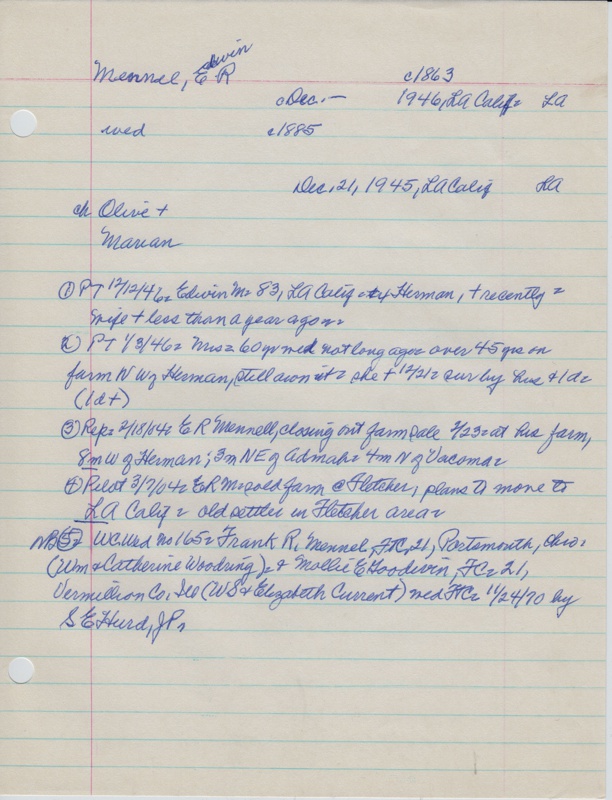 Edwin
Mennel, E R c1863
cDec. — 1946, LA Calif= LA
wed c1885
Dec, 21, 1945, LA Calif LA
ch Olive +
Marian
① PT 12/12/46= Edwin M= 83, LA Calif = Herman, + recently =
wife + less than a year ago=
② PT 1/3/46= Mrs= 60 yr wed not long ago= over 45 yrs on
farm NW of Herman, still own it= she + 12/21= sur by hus + 1d=
(1d+)
③ Rep= 2/18/04= E R Mennell, closing out farm sale 2/23= at his farm,
8m W of Herman; 3m NE of Admah= 4m N of Vacoma=
④ Pilot 3/7/04= ER M= sold farm @ Fletcher, plans to move to
LA Calif= old settler in Fletcher area=
NB ⑤= WC Wed no 165= Frank R. Mennel, FC, 21, Portsmouth, Ohio=
(Wm & Catherine Woodring)= & Mollie E Goodwin, FC= 21,
Vermillion Co. Ill (WS & Elizabeth Current) wed FC= 11/24/70 by
S E Hurd, JP,